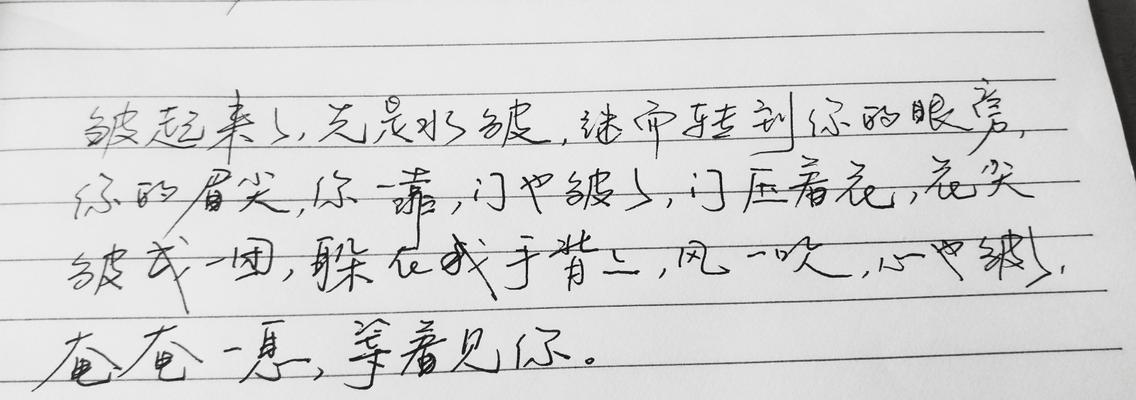 皱起来了,先是水皱,继而转到你的眼旁,
你的眉尖,你一靠,门也皱了,门压着花,花尖
皱成一团,躲在我手背上,风一吹,心也皱了,
奄奄一息,等着见你。